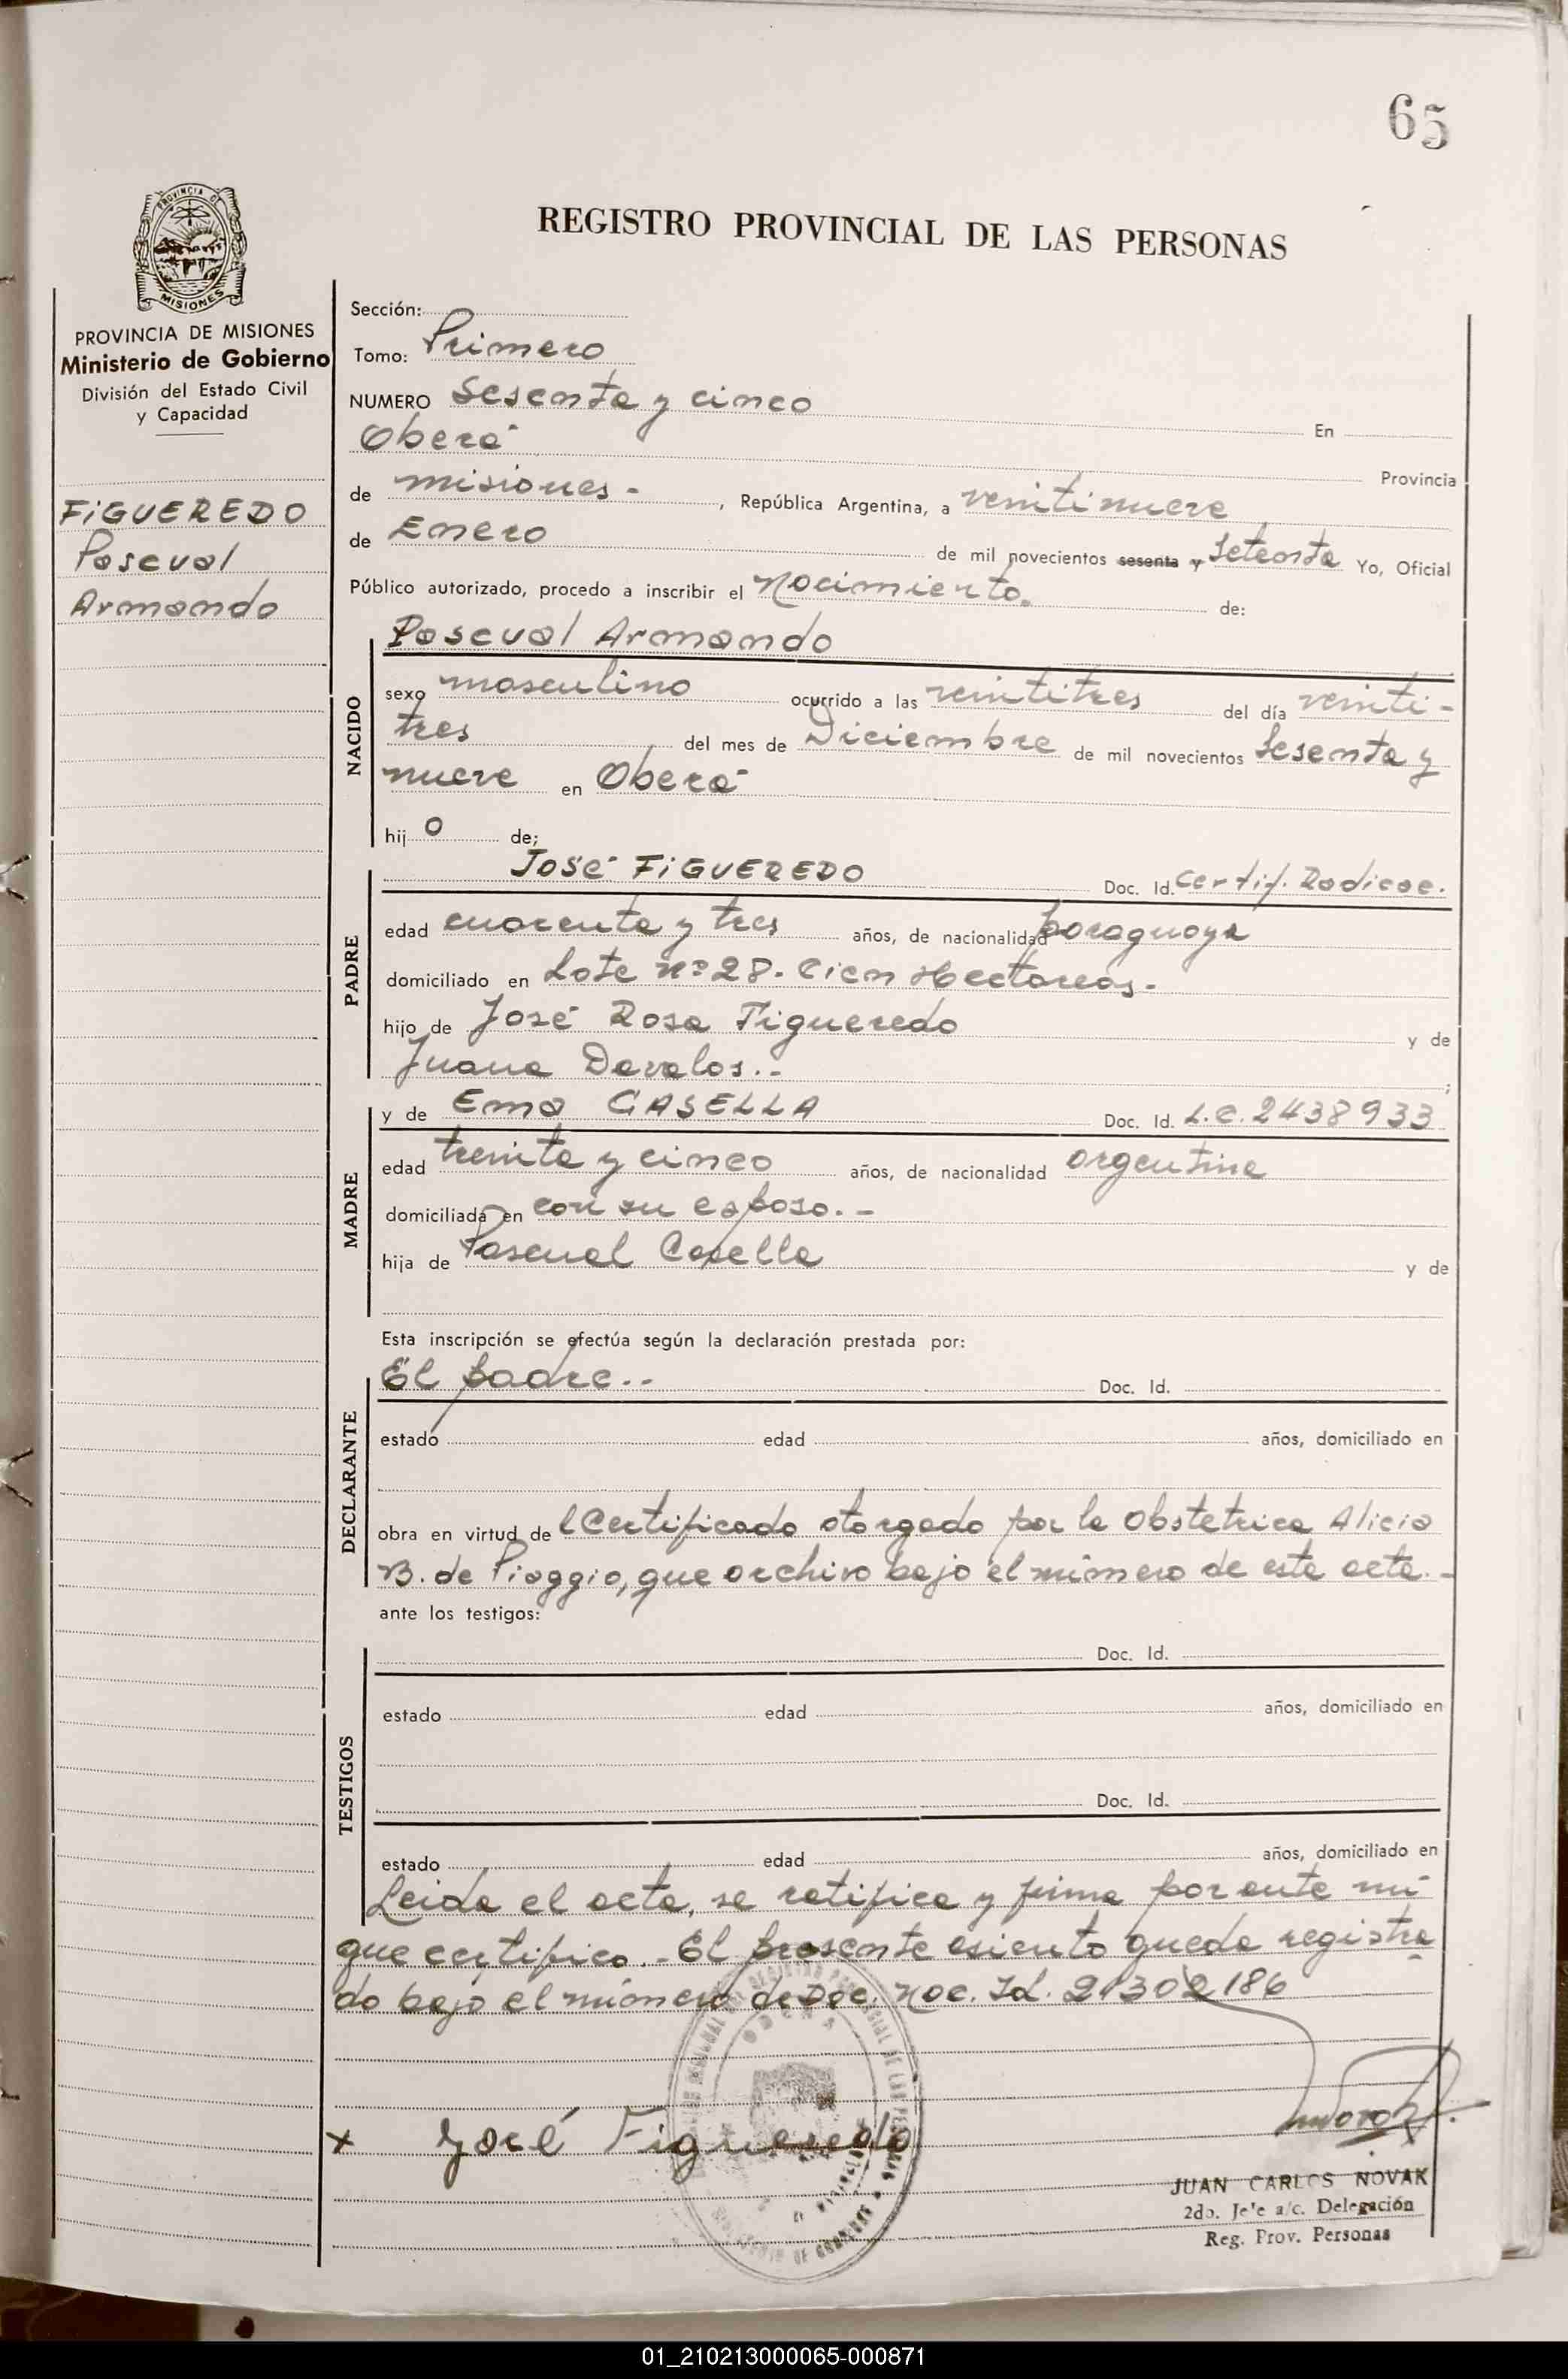 65
REGISTRO PROVINCIAL DE LAS PERSONAS
MISIONES
PROVINCIA DE MISIONES
Ministerio de Gobierno
División del Estado Civil
y Capacidad
FiGUEREDO
Pascual
Armando
Sección:
Tomo: Primero
NUMERO Sesenta y cinco En
Oberá Provincia
de misiones.- , República Argentina, a veintinueve
de Enero de mil novecientos sesenta y Setenta Yo, Oficial
Público autorizado, procedo a inscribir el Nacimiento. de:
NACIDO
Pascual Armando
sexo masculino ocurrido a las veintitres del día veinti-
tres del mes de Diciembre de mil novecientos Sesenta y
nueve en Oberá
hijo de;
PADRE
José FiGUEREDO Doc. Id. Certif. Radicac.
edad cuarenta y tres años, de nacionalidad paraguaya
domiciliado en Lote nº 28. Cien Hectareas.-
hijo de José Rosa Figueredo y de
Juana Davalos.- ;
MADRE
y de Ema CASELLA Doc. Id. L.C. 2438933
edad treinta y cinco años, de nacionalidad argentina
domiciliada en con su esposo.-
hija de Pascual Casella y de
Esta inscripción se efectúa según la declaración prestada por:
DECLARANTE
El padre.- Doc. Id.
estado edad años, domiciliado en
obra en virtud de l Certificado otorgado por la Obstetrica Alicia
B. de Piaggio, que archivo bajo el número de este acta.-
ante los testigos:
TESTIGOS
Doc. Id.
estado edad años, domiciliado en
Doc. Id.
estado edad años, domiciliado en
Leida el acta, se ratifica y firma por ante mi
que certifico.- El presente asiento queda registra
do bajo el número de Doc. Nac. Id. 21302186
x José Figueredo
JUAN CARLOS NOVAK
2do. Jefe a/c. Delegación
Reg. Prov. Personas
01_210213000065-000871